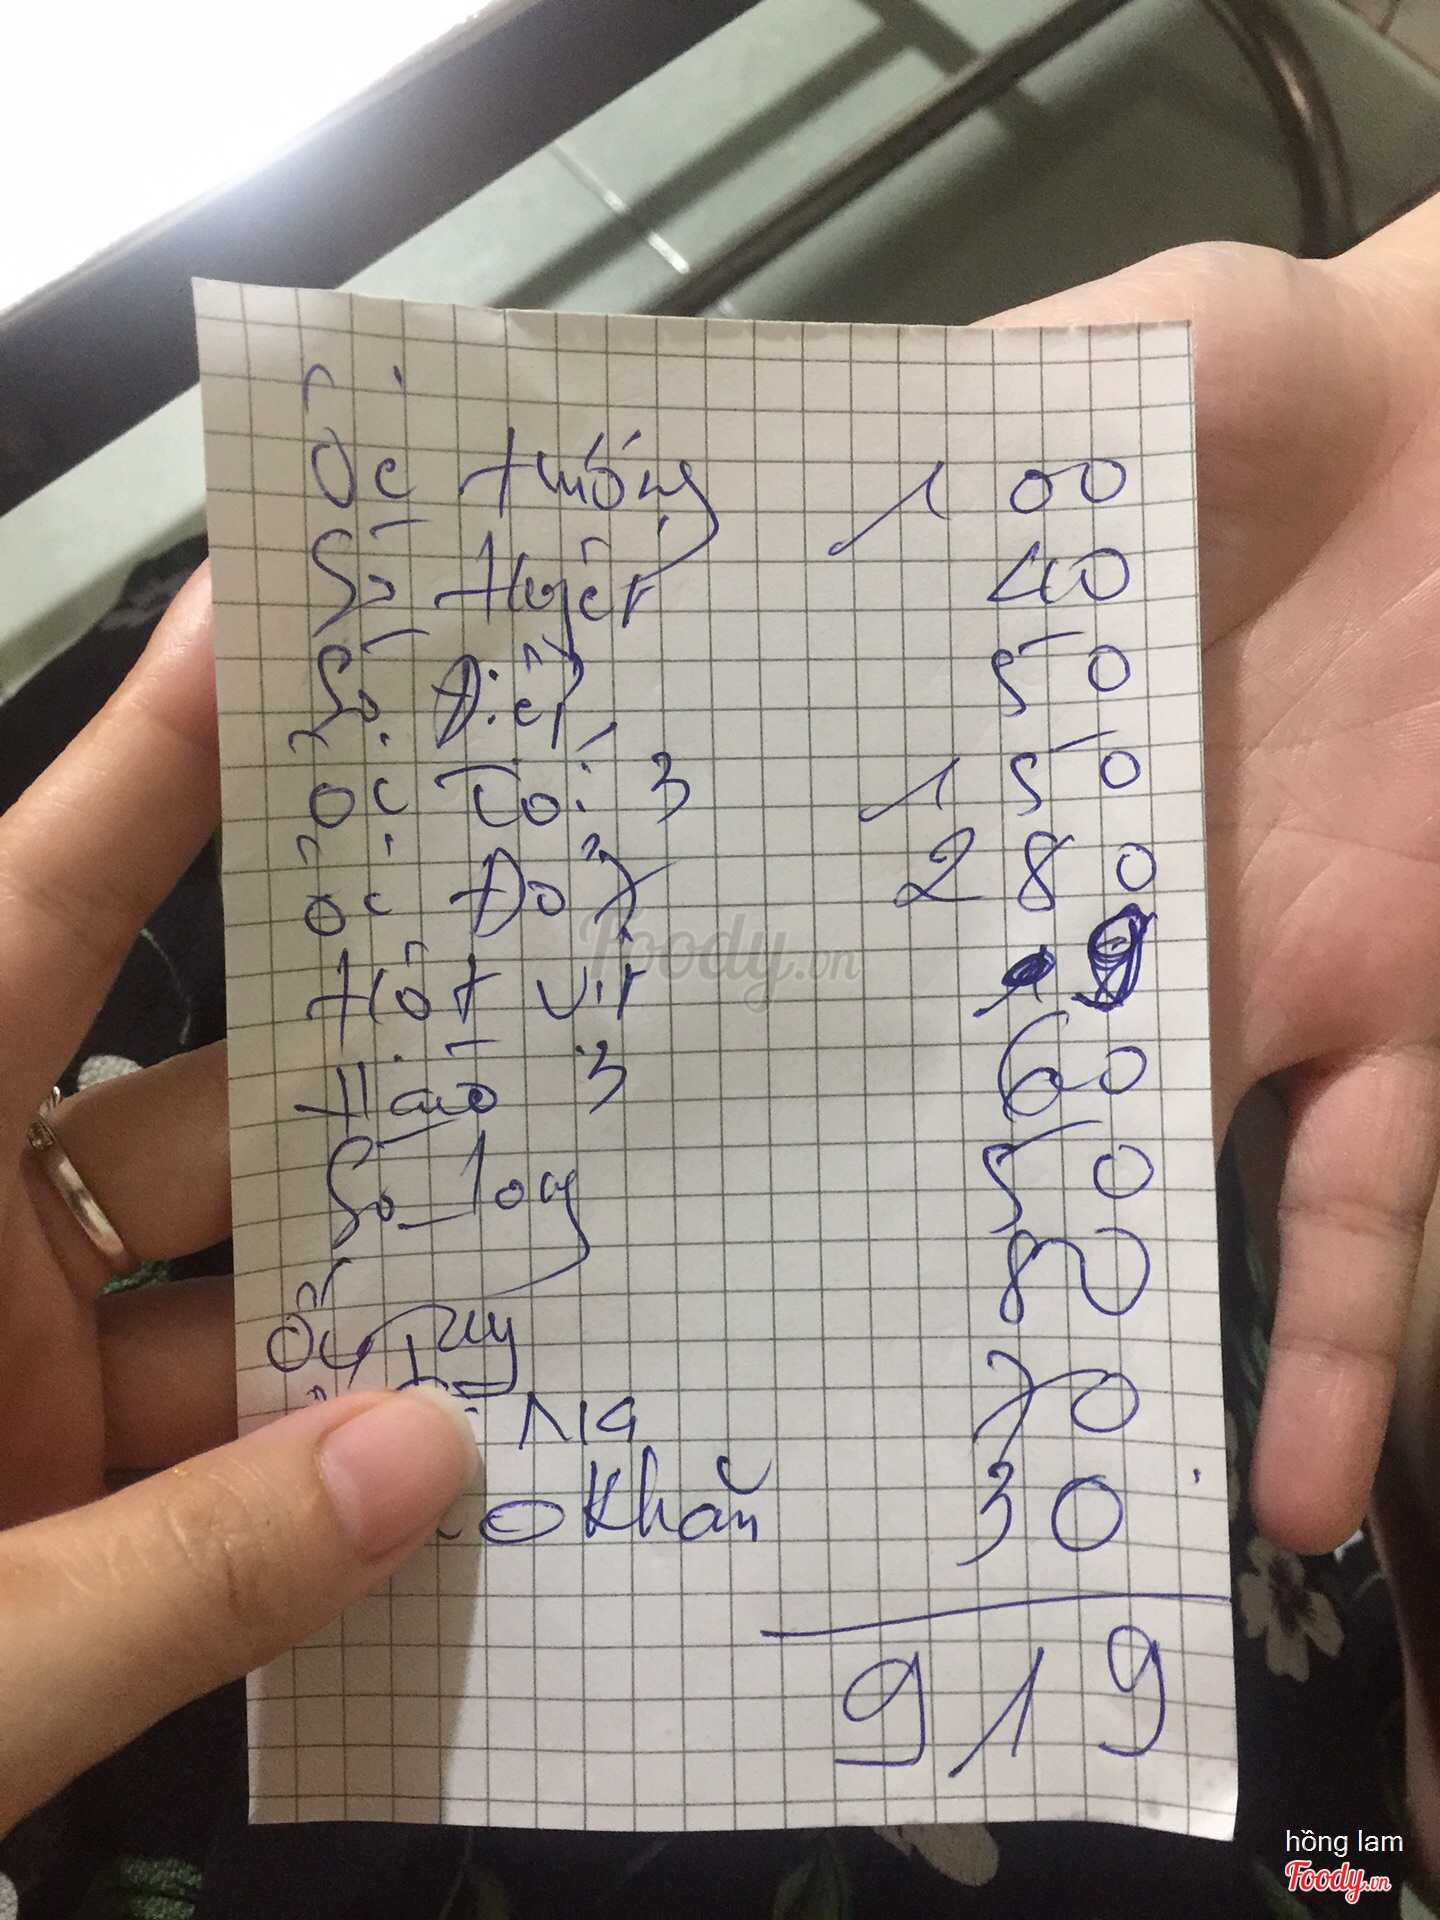 Ốc hương 100
Sò huyết 40
Sò Điệp 50
Ốc Tỏi 3 150
Ốc Đỏ 7 280
Hột vịt 9
Hào 3 60
Sò lông 50
Ốc 80
70
Khăn 30
919
Foody.vn
hồng lam
Foody.vn